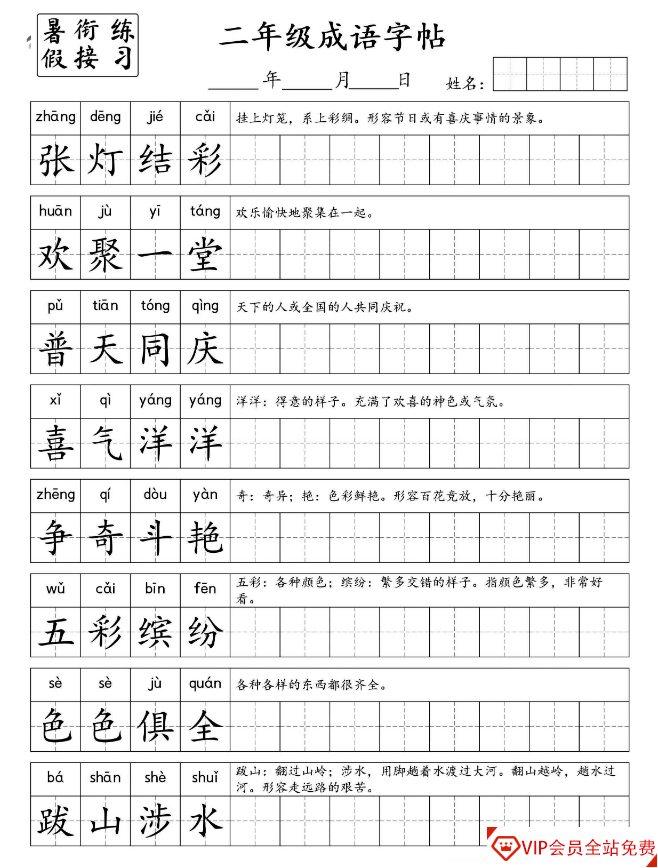 暑 衔 练
假 接 习
二年级成语字帖
年 月 日 姓名：
zhāng dēng jié cǎi
挂上灯笼，系上彩绸。形容节日或有喜庆事情的景象。
张灯结彩
huān jù yī táng
欢乐愉快地聚集在一起。
欢聚一堂
pǔ tiān tóng qìng
天下的人或全国的人共同庆祝。
普天同庆
xǐ qì yáng yáng
洋洋：得意的样子。充满了欢喜的神色或气氛。
喜气洋洋
zhēng qí dòu yàn
奇：奇异；艳：色彩鲜艳。形容百花竞放，十分艳丽。
争奇斗艳
wǔ cǎi bīn fēn
五彩：各种颜色；缤纷：繁多交错的样子。指颜色繁多，非常好
看。
五彩缤纷
sè sè jù quán
各种各样的东西都很齐全。
色色俱全
bá shān shè shuǐ
跋山：翻过山岭；涉水，用脚趟着水渡过大河。翻山越岭，趟水过
河。形容走远路的艰苦。
跋山涉水
VIP会员全站免费